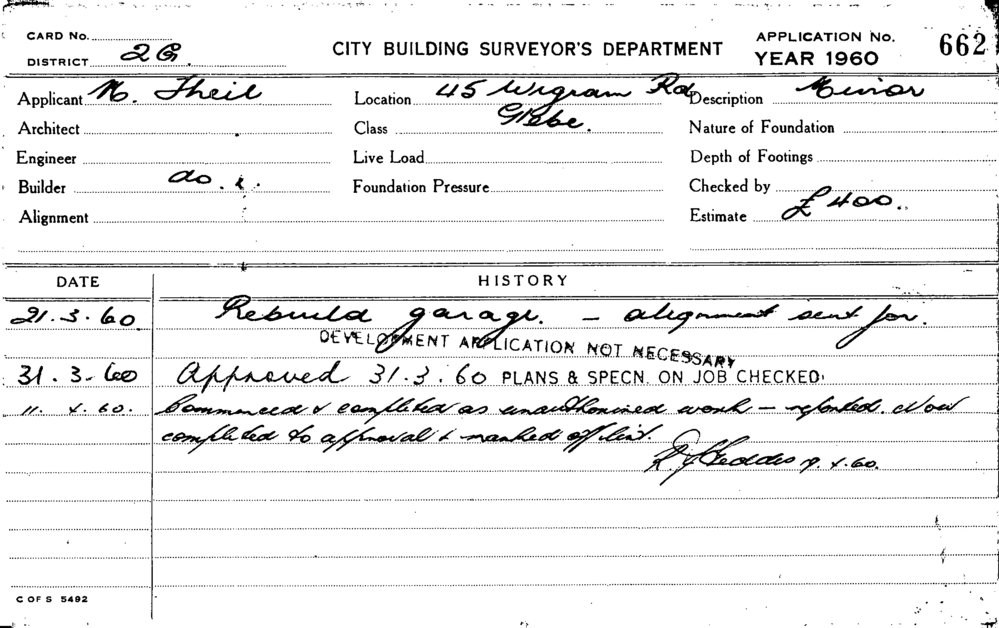 CARD No.
DISTRICT 2G.
CITY BUILDING SURVEYOR'S DEPARTMENT
APPLICATION No. 662
YEAR 1960
Applicant N. Theil
Location 45 Wigram Rd
Glebe.
Description Minor
Architect
Class
Nature of Foundation
Engineer
Live Load
Depth of Footings
Builder do.
Foundation Pressure
Checked by
Alignment
Estimate £400.
DATE HISTORY
21.3.60 Rebuild garage. - alignment sent for.
DEVELOPMENT APPLICATION NOT NECESSARY
31.3.60 Approved 31.3.60 PLANS & SPECN. ON JOB CHECKED
11. 4. 60. Commenced & completed as unauthorised work - reported. Now
completed to approval & marked off list.
Geddes 4.60.
C OF S 5492